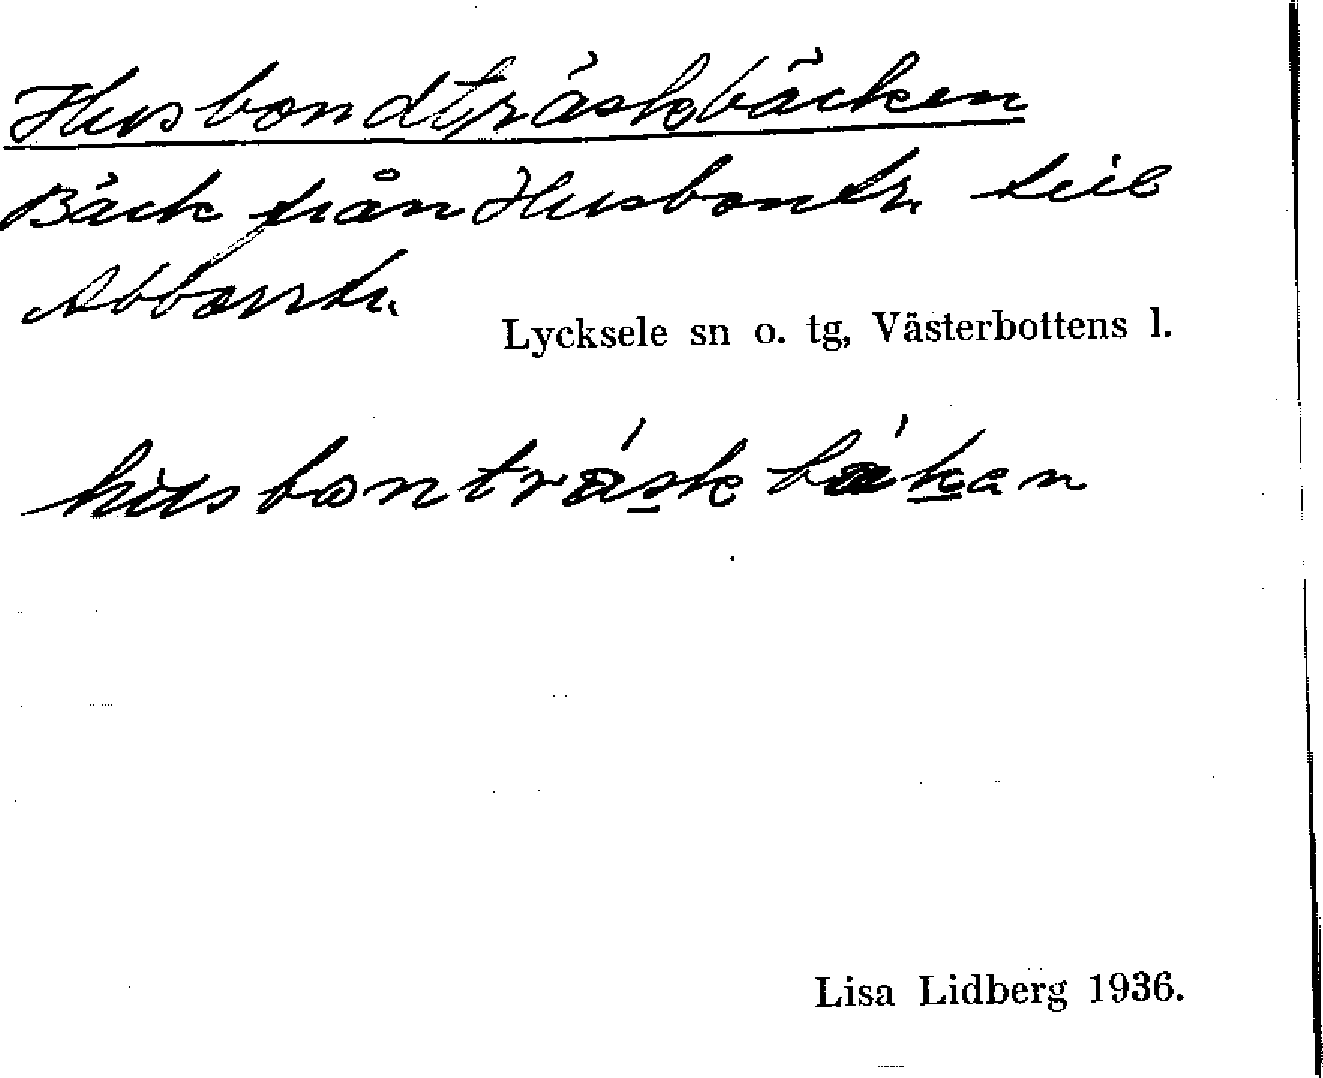 Husbondträskbäcken
Bäck från Husbontr. till
Abborrtr.
Lycksele sn o. tg, Västerbottens l.
husbonträskbäkan
Lisa Lidberg 1936.